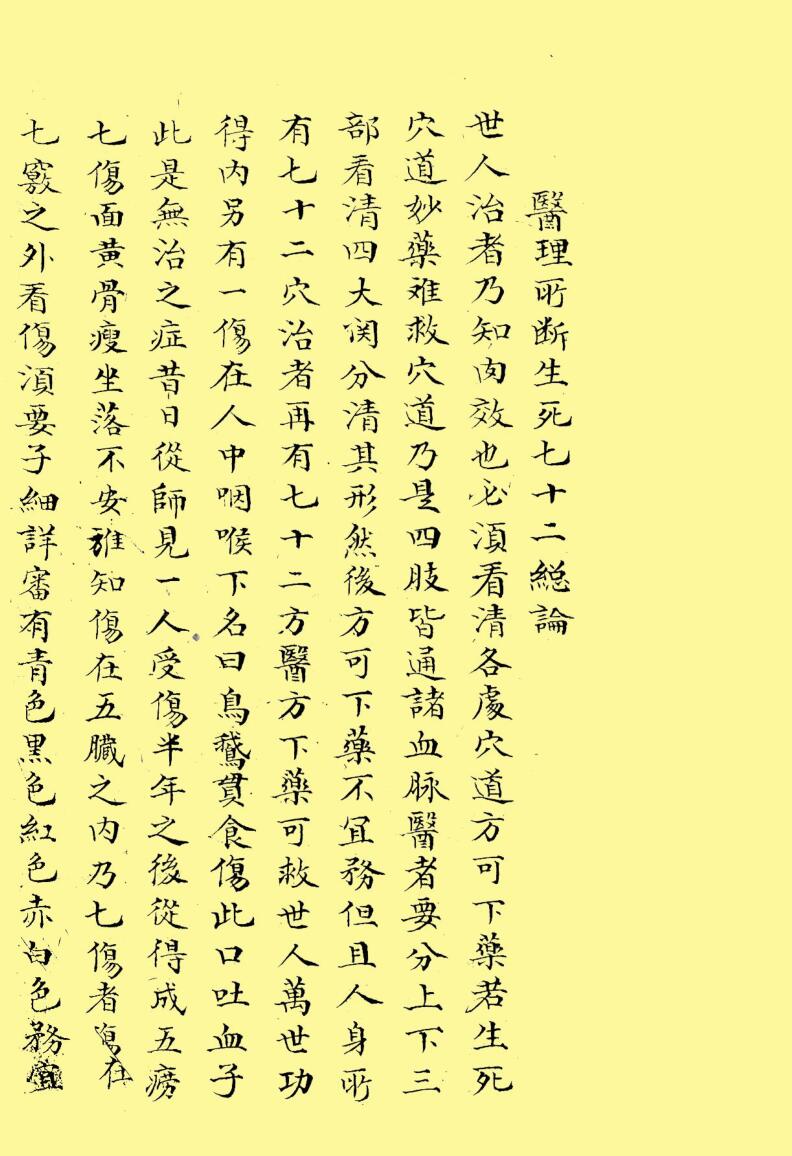 醫理所断生死七十二総論
世人治者乃知肉效也必湏看清各處穴道方可下藥若生死
穴道妙藥难救穴道乃是四肢皆通諸血脉醫者要分上下三
部看清四大関分清其形然後方可下藥不宜務但且人身所
有七十二穴治者再有七十二方醫方下藥可救世人萬世功
得内另有一傷在人中咽喉下名曰鳥鵝貫食傷此口吐血子
此是無治之症昔日從師見一人受傷半年之後從得成五痨
七傷面黄骨瘦坐落不安誰知傷在五臟之内乃七傷者傷在
七竅之外看傷湏要子細詳審有青色黒色紅色赤白色務宜